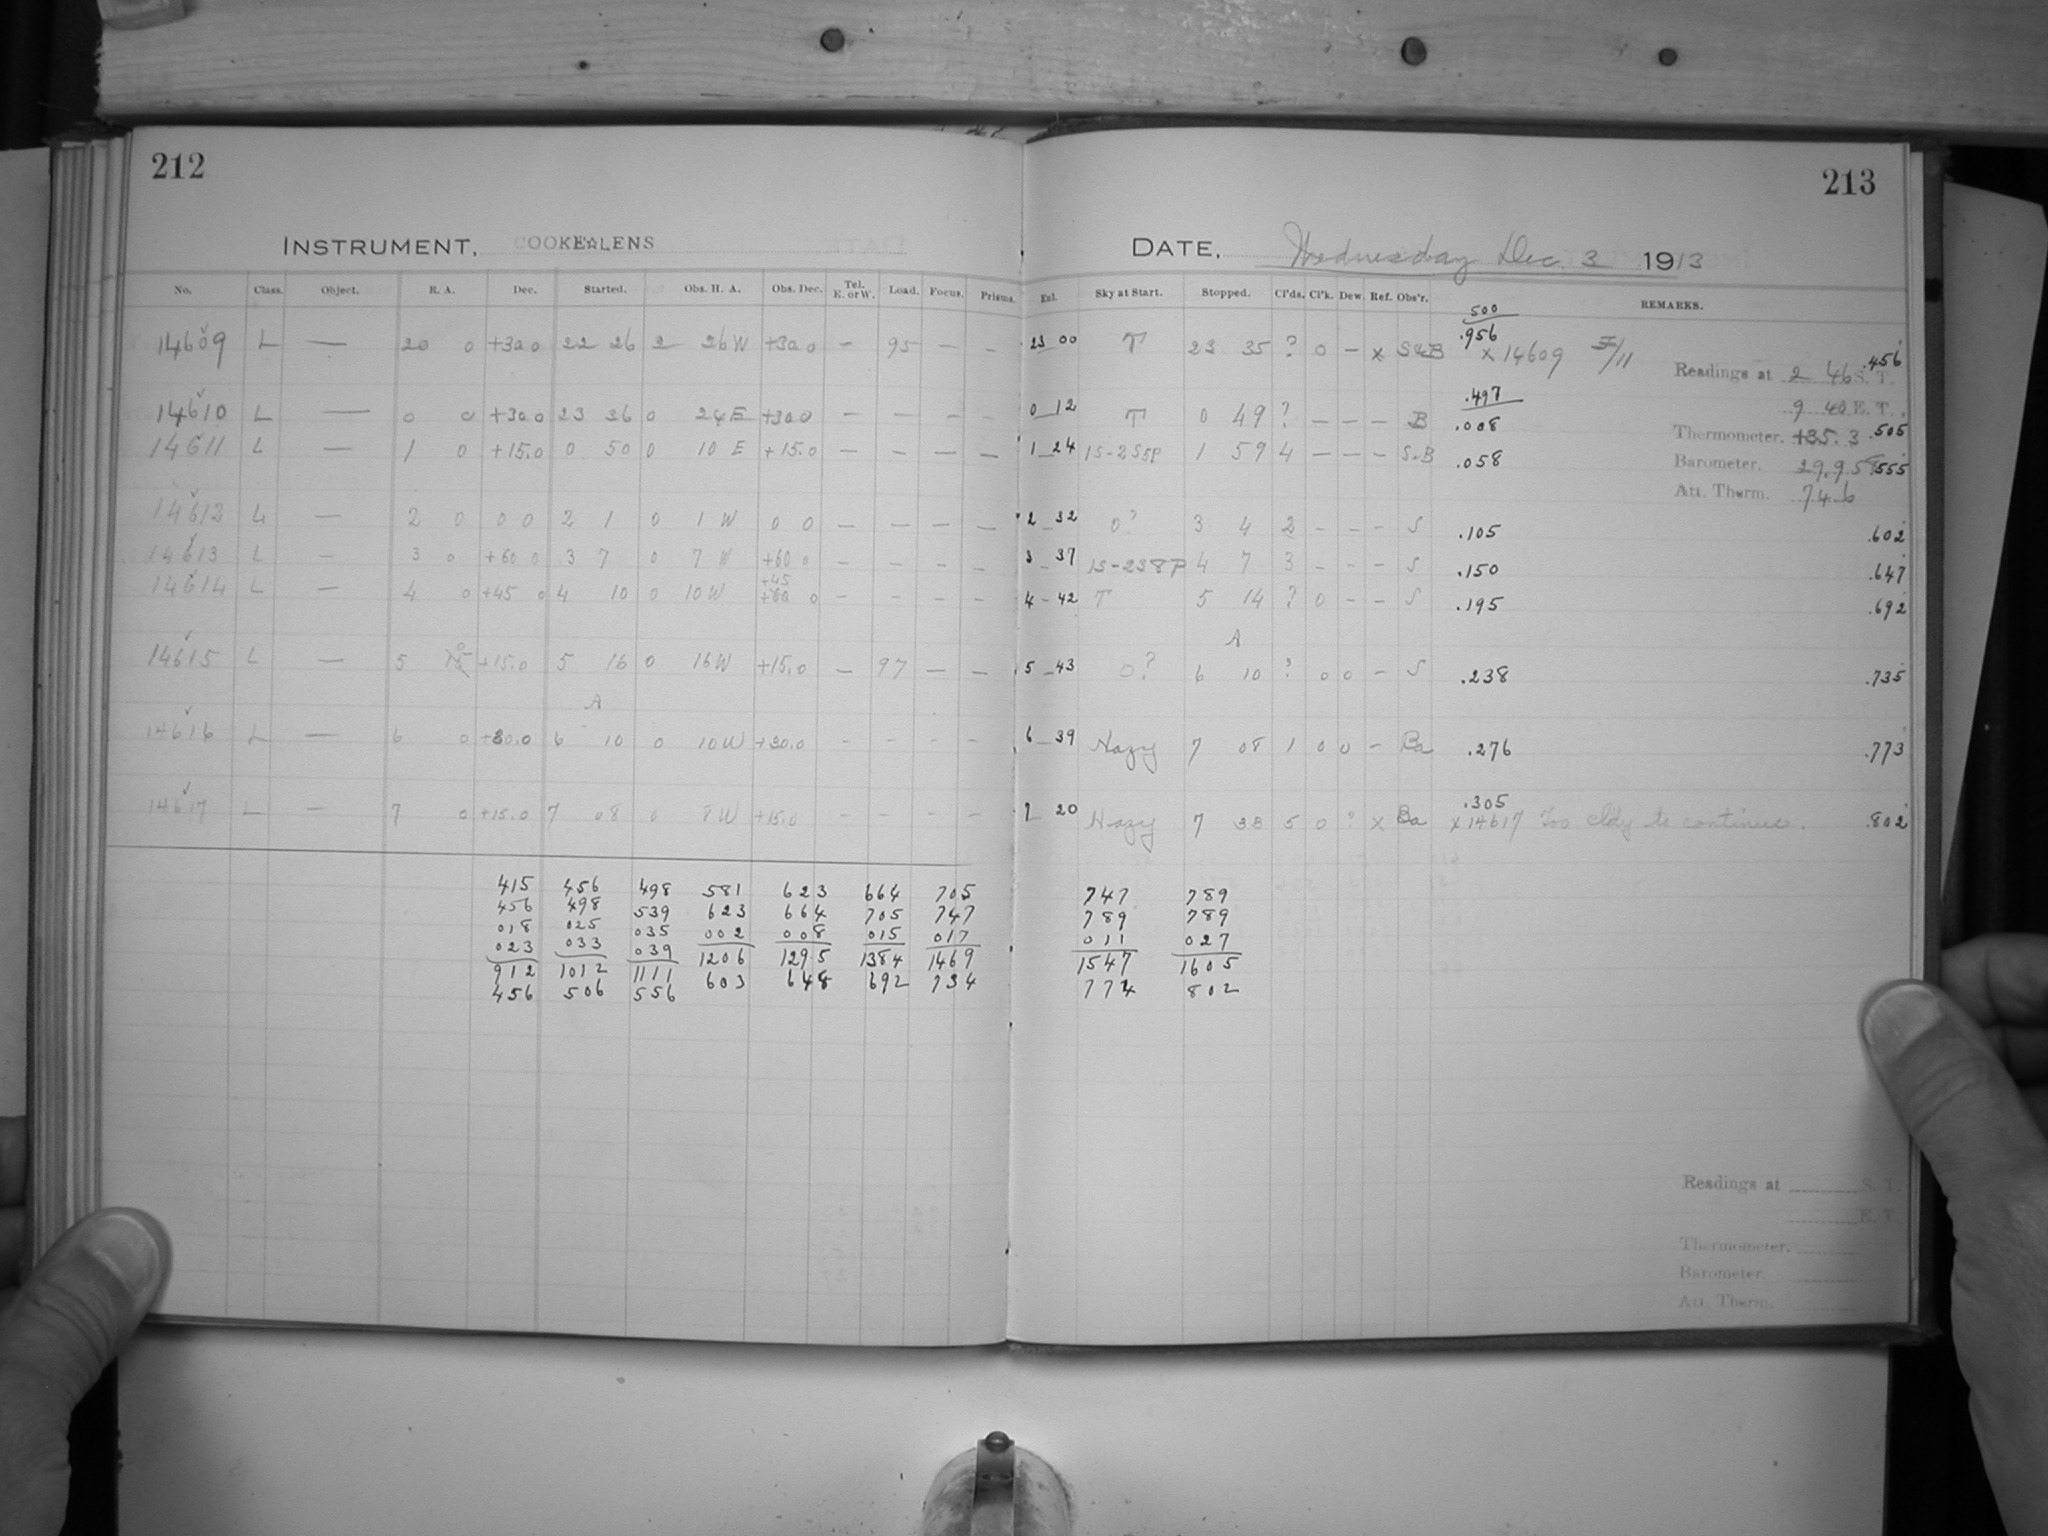 212
213
INSTRUMENT, COOKE☆LENS
DATE, Wednesday Dec. 3 1913
No. Class. Object. R. A. Dec. Started. Obs. H. A. Obs. Dec. Tel. E. or W. Load. Focus. Prisms. Enl. Sky at Start. Stopped. Cl'ds. Cl'k. Dew. Ref. Obs'r. REMARKS.
500
.956
14609 L — 20 0 +30 0 22 26 2 26W +30 0 — 95 — — 23 00 T 23 35 ? 0 — x S&B x 14609
.456
Readings at 2 46 S. T.
9 40 E. T.
.497
14610 L — 0 0 +30 0 23 36 0 24E +30 0 — — — — 0 12 T 0 49 ? — — — B .008
Thermometer. +35.3 .505
14611 L — 1 0 +15.0 0 50 0 10 E +15.0 — — — — 1 24 1S-2S5P 1 59 4 — — — S.B .058
Barometer. 29.95 .555
Att. Therm. 74.6
14612 L — 2 0 0 0 2 1 0 1 W 0 0 — — — — 2 32 0? 3 4 2 — — — S .105 .602
14613 L — 3 0 +60 0 3 7 0 7 W +60 0 — — — — 3 37 1S-2S8P 4 7 3 — — — S .150 .647
+45
14614 L — 4 0 +45 0 4 10 0 10W +60 0 — — — — 4 - 42 T 5 14 ? 0 — — S .195 .692
A
14615 L — 5 0 +15.0 5 16 0 16W +15.0 — 97 — — 5 43 0? 6 10 ? 0 0 — S .238 .735
A
14616 L — 6 0 +30.0 6 10 0 10W +30.0 — — — — 6 39 Hazy 7 08 1 0 0 — Ba .276 .773
.305
14617 L — 7 0 +15.0 7 08 0 8W +15.0 — — — — 7 20 Hazy 7 38 5 0 ? x Ba x 14617 Too cldy to continue. .802
415 456 498 581 623 664 705 747 789
456 498 539 623 664 705 747 789 789
018 025 035 002 008 015 017 011 027
023 033 039 1206 1295 1384 1469 1547 1605
912 1012 1111 603 648 692 734 774 802
456 506 556
Readings at S. T.
E. T.
Thermometer.
Barometer.
Att. Therm.